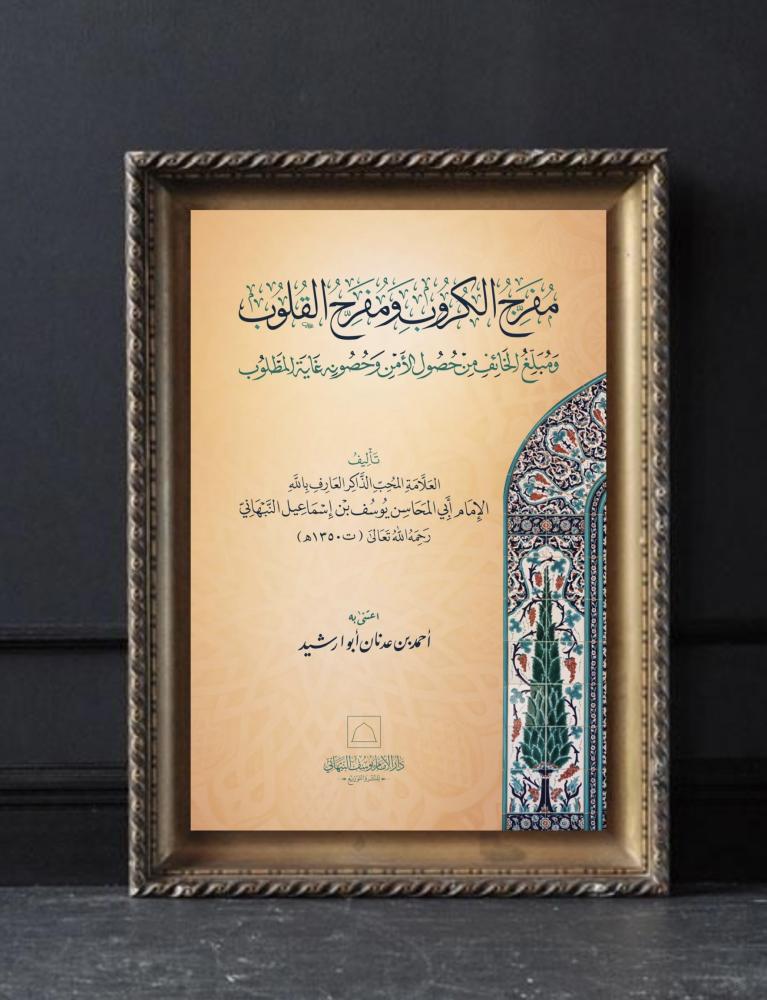 مُفَرِّجُ الكُرُوبِ وَمُفَرِّحُ القُلُوبِ
وَمُبَلِّغُ الخَائِفِ مِنْ حُصُولِ الأَمْنِ وَحُصُونِهِ غَايَةَ المَطْلُوبِ
تَأْلِيفُ
العَلَّامَةِ المُحِبِّ الذَّاكِرِ العَارِفِ بِاللَّهِ
الإِمَامِ أَبِي المَحَاسِنِ يُوسُفَ بْنِ إِسْمَاعِيلَ النَّبْهَانِيِّ
رَحِمَهُ اللهُ تَعَالَى (ت ١٣٥٠هـ)
اعتنى به
أحمد بن عدنان أبو ارشيد
دار الإمام يوسف النبهاني
للنشر والتوزيع